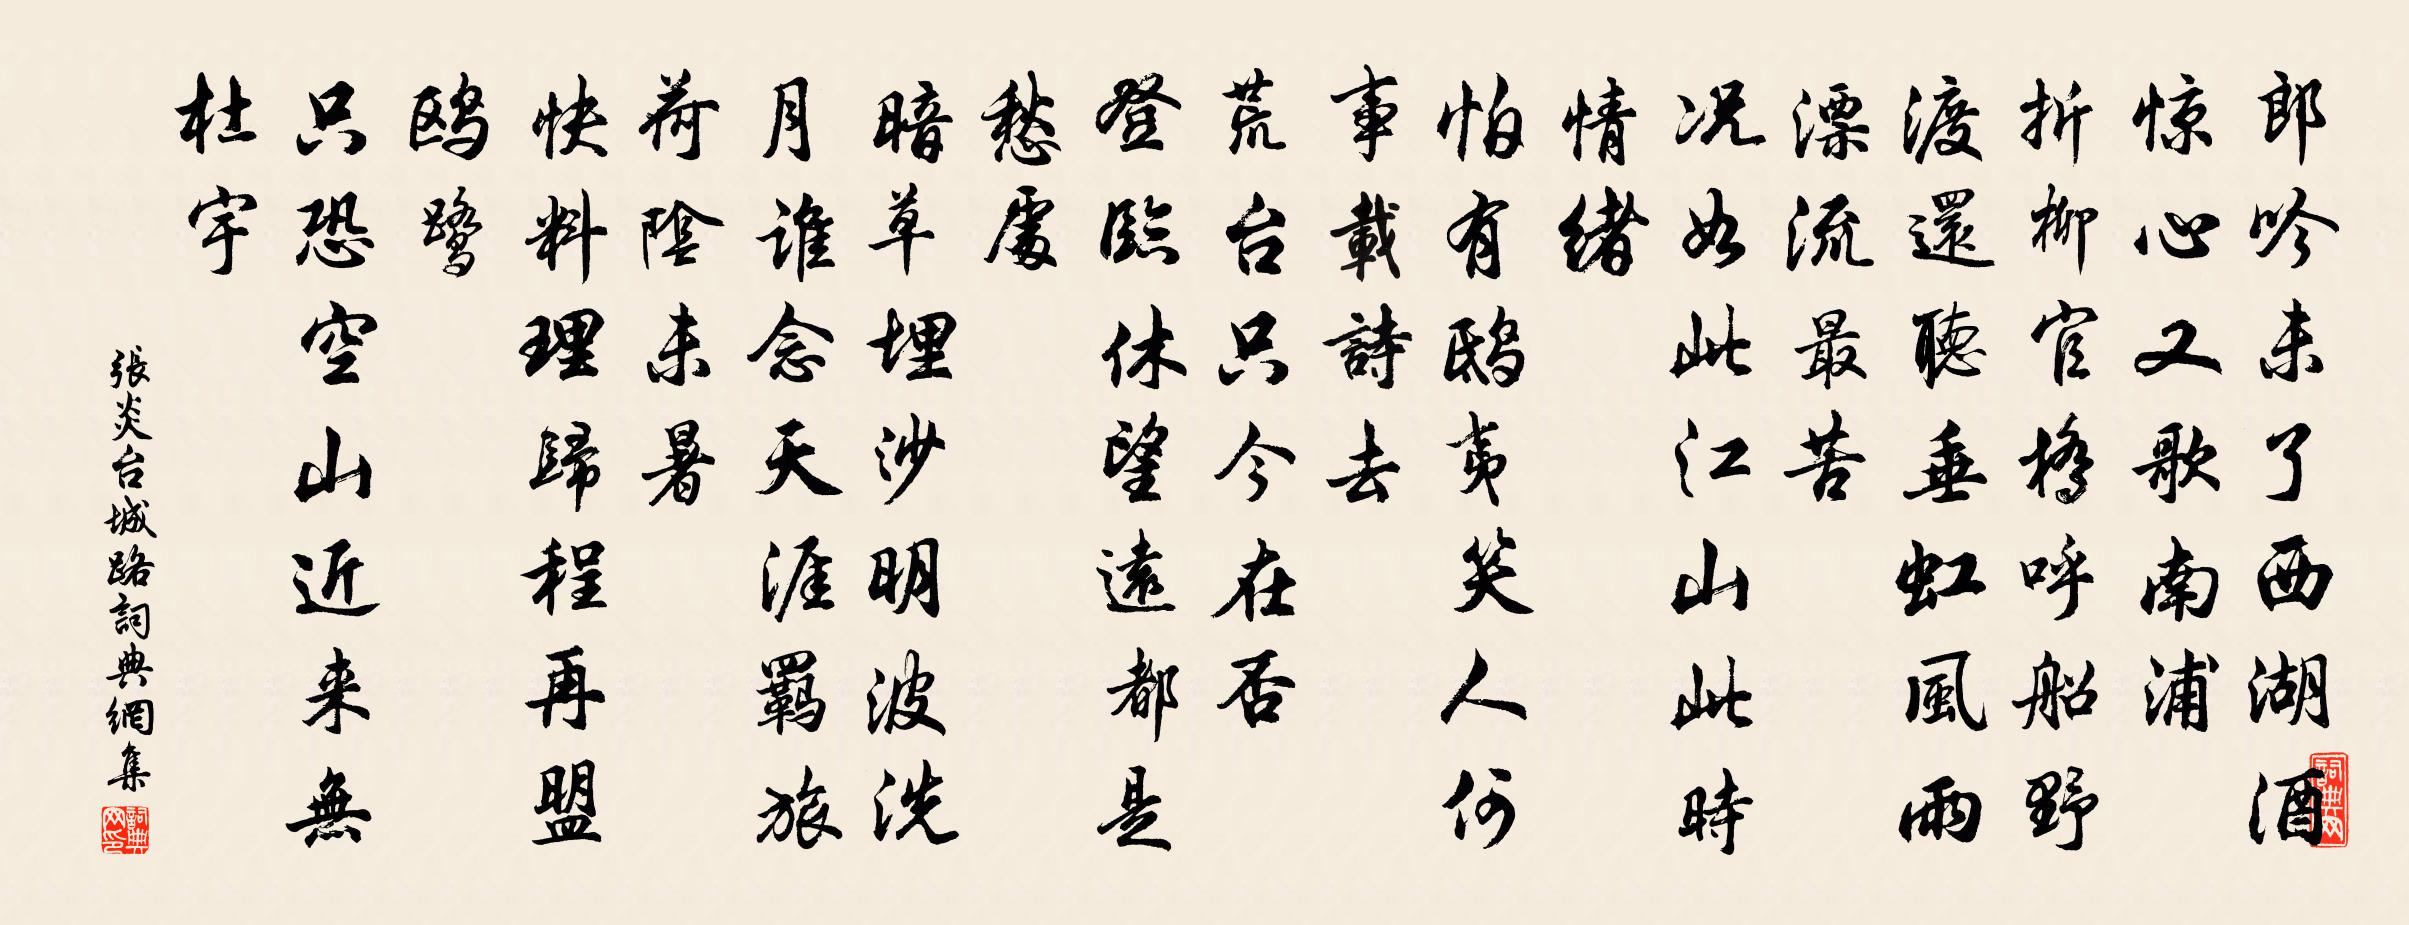 郎吟未了西湖酒
惊心又歌南浦
折柳官橋呼船野
渡還聽垂虹風雨
漂流最苦
况如此江山此時
情緒
怕有鴟夷笑人何
事載詩去
荒台只今在否
登臨休望遠都是
愁處
暗草埋沙明波洗
月谁念天涯羁旅
荷陰未暑
快料理歸程再盟
鸥鹭
只恐空山近来無
杜宇
張炎台城路詞典網集
詞典網
詞典網印